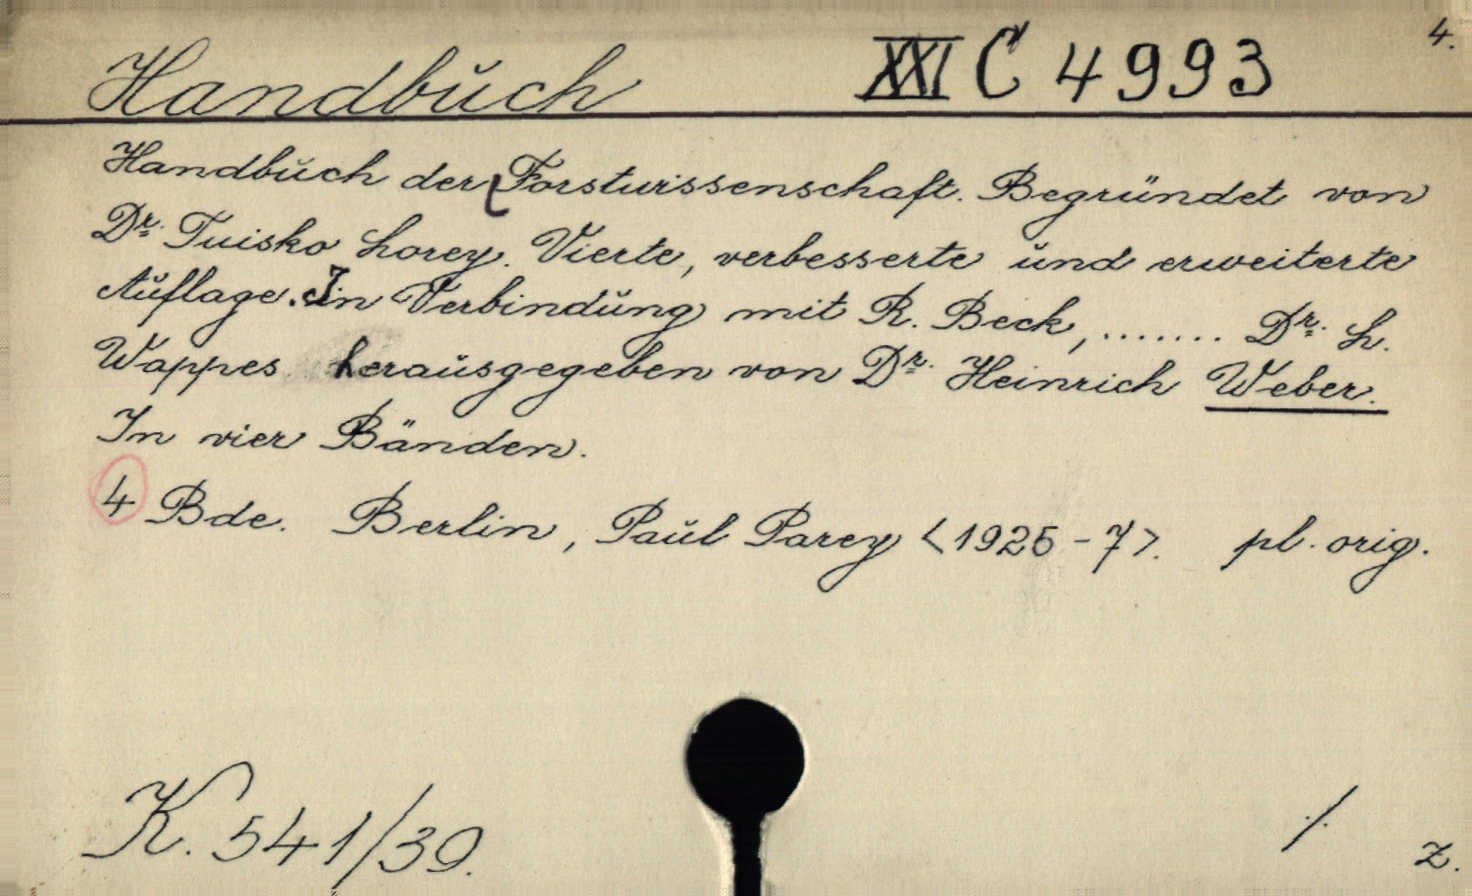 4.
Handbuch XXI C 4993
Handbuch der Forstwissenschaft. Begründet von
Dr. Tuisko Lorey. Vierte, verbesserte und erweiterte
Auflage. In Verbindung mit R. Beck, ....... Dr. L.
Wappes herausgegeben von Dr. Heinrich Weber.
In vier Bänden.
4 Bde. Berlin, Paul Parey <1925-7>. pl. orig.
K. 541/39.
./.
z.